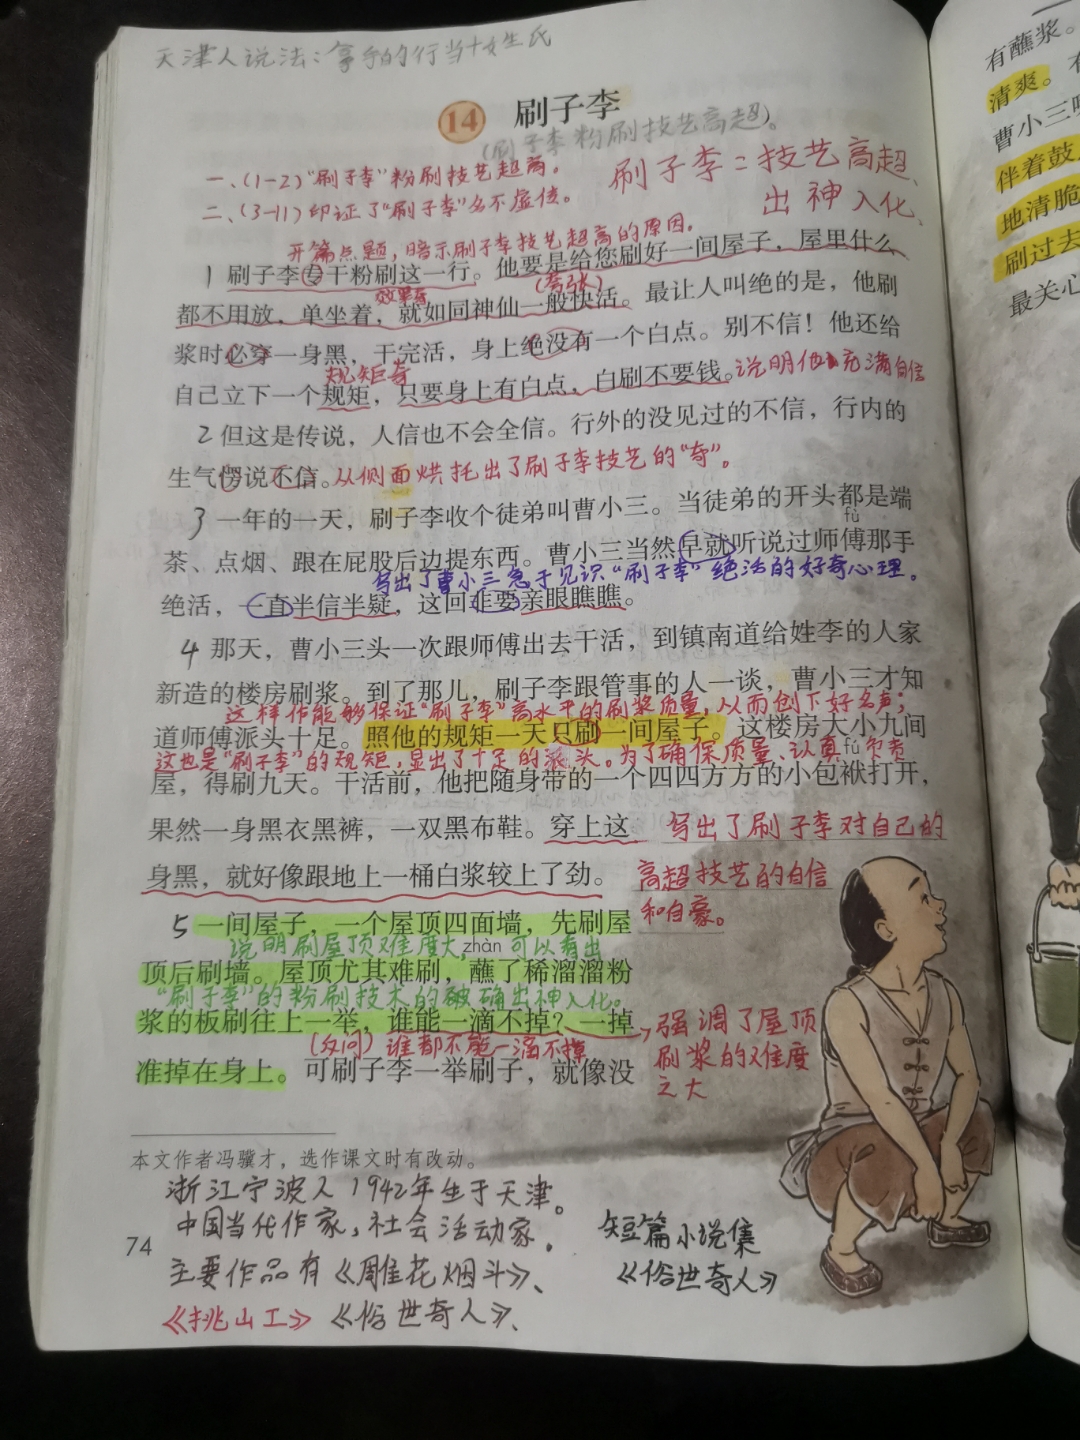 天津人说法：拿手的行当十姓氏
14 刷子李
(刷子李粉刷技艺高超)。
一、(1-2)“刷子李”粉刷技艺超高。
刷子李：技艺高超、
二、(3-11)印证了“刷子李”名不虚传。
出神入化、
开篇点题，暗示刷子李技艺超高的原因。
1 刷子李专干粉刷这一行。他要是给您刷好一间屋子，屋里什么
效果奇
(夸张)
都不用放，单坐着，就如同神仙一般快活。最让人叫绝的是，他刷
浆时必穿一身黑，干完活，身上绝没有一个白点。别不信！他还给
规矩奇
自己立下一个规矩，只要身上有白点，白刷不要钱。说明他充满自信
2 但这是传说，人信也不会全信。行外的没见过的不信，行内的
生气愣说不信。从侧面烘托出了刷子李技艺的“奇”。
3 一年的一天，刷子李收个徒弟叫曹小三。当徒弟的开头都是端
fù
茶、点烟、跟在屁股后边提东西。曹小三当然早就听说过师傅那手
写出了曹小三急于见识“刷子李”绝活的好奇心理。
绝活，一直半信半疑，这回非要亲眼瞧瞧。
4 那天，曹小三头一次跟师傅出去干活，到镇南道给姓李的人家
新造的楼房刷浆。到了那儿，刷子李跟管事的人一谈，曹小三才知
这样作能够保证“刷子李”高水平的刷浆质量，从而创下好名声；
道师傅派头十足。照他的规矩一天只刷一间屋子。这楼房大小九间
这也是“刷子李”的规矩，显出了十足的派头。为了确保质量、认真负责
fú
屋，得刷九天。干活前，他把随身带的一个四四方方的小包袱打开，
果然一身黑衣黑裤，一双黑布鞋。穿上这
写出了刷子李对自己的
身黑，就好像跟地上一桶白浆较上了劲。
高超技艺的自信
和自豪。
5 一间屋子，一个屋顶四面墙，先刷屋
说明刷屋顶难度大，可以看出
zhàn
顶后刷墙。屋顶尤其难刷，蘸了稀溜溜粉
“刷子李”的粉刷技术的确出神入化。
浆的板刷往上一举，谁能一滴不掉？一掉
(反问)谁都不能一滴不掉
强调了屋顶
刷浆的难度
之大
准掉在身上。可刷子李一举刷子，就像没
本文作者冯骥才，选作课文时有改动。
浙江宁波人 1942年生于天津。
中国当代作家，社会活动家。
主要作品有《雕花烟斗》、
《挑山工》《俗世奇人》、
短篇小说集
《俗世奇人》
74
有蘸浆。
清爽。
曹小三
伴着鼓
地清脆
刷过去
最关心